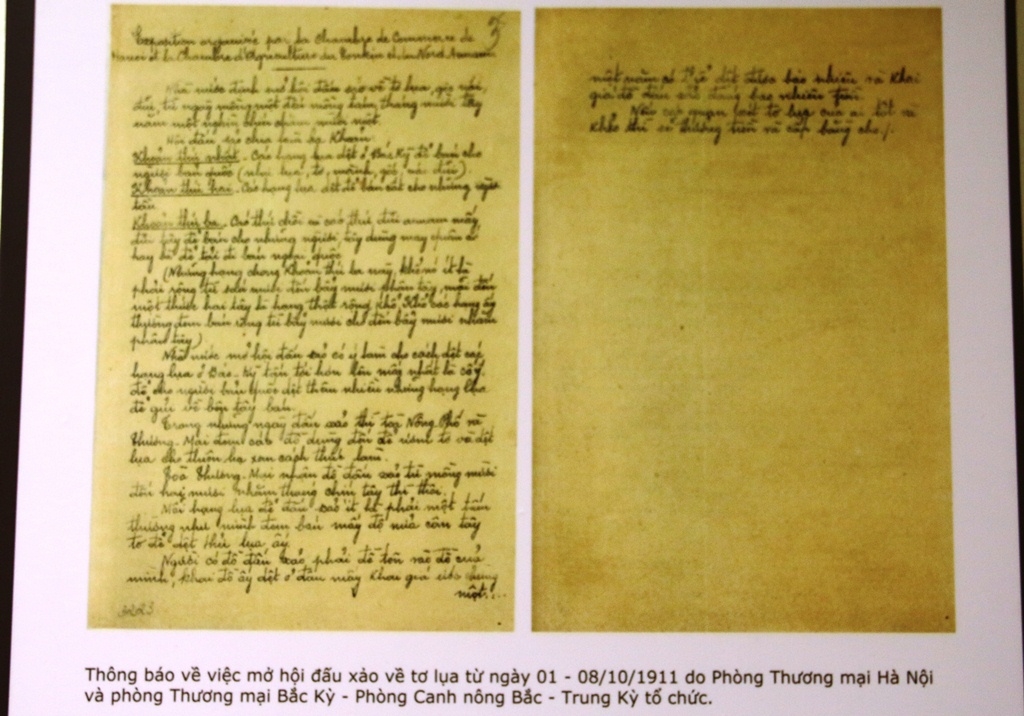 Exposition organisée par la Chambre de Commerce de
Hanoi et la Chambre d'Agriculture du Tonkin et du Nord Annam
Nhà nước định mở hội đấu xảo về tơ lụa, gốc vải,
đũi, từ ngày mồng một đến mồng tám, tháng mười tây
năm một nghìn chín trăm mười một.
Hội đấu xảo chia làm ba khoản:
Khoản thứ nhất. Các hạng lụa dệt ở Bắc Kỳ để bán cho
người bản quốc (như lụa, to, vải đũi).
Khoản thứ hai. Các hạng lụa dệt để bán cho những người
tầu.
Khoản thứ ba. Các thứ đũi annam mấy
đũi tây để bán cho những người tây dùng may quần áo
hay là để tải đi bán ngoại quốc
(Những hạng trong khoản thứ ba này, khổ nó ít là
phải rộng từ sáu mươi đến bẩy mươi phân tây, mới đến
một thước hai tây là hạng thật rộng khổ. Khổ các hạng ấy
thường đem bán rộng từ bẩy mươi cho đến bẩy mươi nhăm
phân tây)
Nhà nước mở hội đấu xảo có ý làm cho cách dệt các
hạng lụa ở Bắc-Kỳ tấn tới hơn lên mấy nhất là cố ý
để cho người bản quốc dệt thêm nhiều những hạng lụa
để gửi về bên tây bán.
Trong những ngày đấu xảo thì tòa Nông Phố và
Thương-Mại đem các đồ dùng đến để ươm tơ và dệt
lụa cho thiên hạ xem cách thức làm.
Tòa Thương-Mại nhận đồ đấu xảo từ mồng mười
đến hai mươi nhăm tháng chín tây thì thôi.
Mỗi hạng lụa để đấu xảo ít là phải một tấm
thường như mình đem bán mấy độ nửa cân tây
tơ để dệt thứ lụa ấy.
Người có đồ đấu xảo phải đề tên vào đồ của
mình, khai đồ ấy dệt ở đâu mấy khai giá chừng
một...
một năm có thể dệt được bao nhiêu và khai
giá đồ đáng bao nhiêu
Nếu các quan tơ lụa của ai tốt và
khéo thì sẽ thưởng tiền và cấp bằng cho./.
Thông báo về việc mở hội đấu xảo về tơ lụa từ ngày 01 - 08/10/1911 do Phòng Thương mại Hà Nội
và phòng Thương mại Bắc Kỳ - Phòng Canh nông Bắc - Trung Kỳ tổ chức.